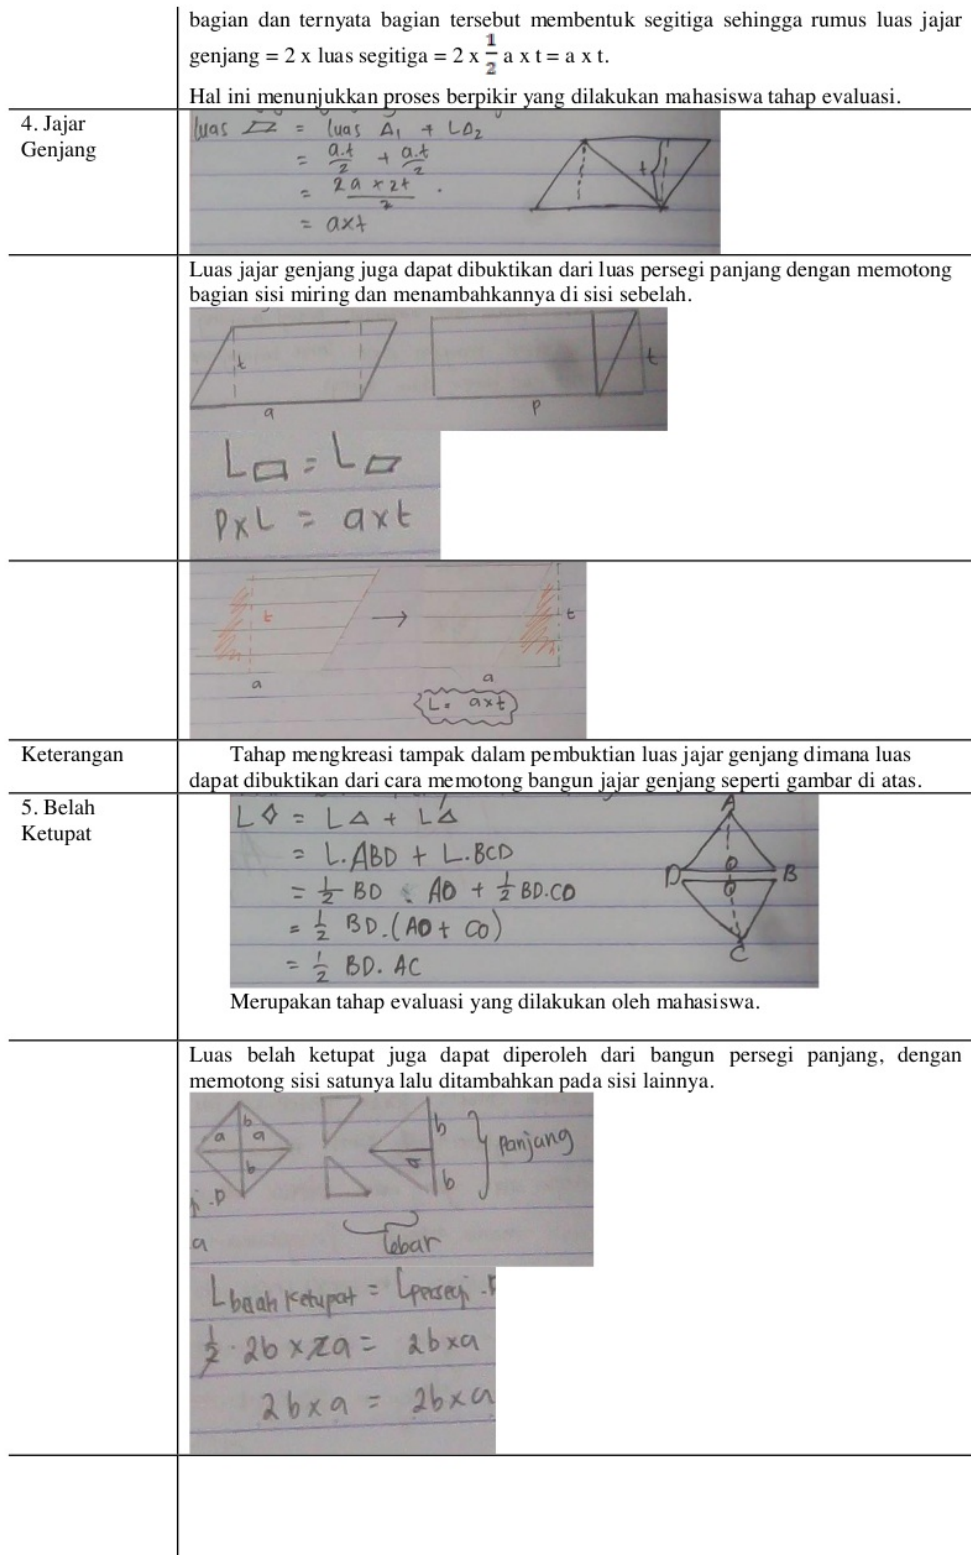 bagian dan ternyata bagian tersebut membentuk segitiga sehingga rumus luas jajar
genjang = 2 x luas segitiga = 2 x 1/2 a x t = a x t.
Hal ini menunjukkan proses berpikir yang dilakukan mahasiswa tahap evaluasi.
4. Jajar
Genjang
luas ▱ = luas Δ₁ + LΔ₂
= a.t/2 + a.t/2
= 2a x 2t/2
= axt
t
Luas jajar genjang juga dapat dibuktikan dari luas persegi panjang dengan memotong
bagian sisi miring dan menambahkannya di sisi sebelah.
t
a
t
P
L▭ = L▱
P x L = a x t
t
a
→
t
a
L = a x t
Keterangan
Tahap mengkreasi tampak dalam pembuktian luas jajar genjang dimana luas
dapat dibuktikan dari cara memotong bangun jajar genjang seperti gambar di atas.
5. Belah
Ketupat
L◊ = LΔ + LΔ
= L.ABD + L.BCD
= 1/2 BD . AO + 1/2 BD.CO
= 1/2 BD.(AO + CO)
= 1/2 BD. AC
A
D
O
B
O
C
Merupakan tahap evaluasi yang dilakukan oleh mahasiswa.
Luas belah ketupat juga dapat diperoleh dari bangun persegi panjang, dengan
memotong sisi satunya lalu ditambahkan pada sisi lainnya.
b
a a
b
b
a
b
Panjang
a
Lebar
L belah ketupat = L persegi .P
1/2 . 2b x 2a = 2b x a
2b x a = 2b x a